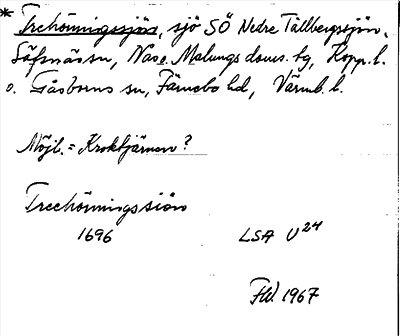 * Trehörningssjön, sjö SÖ Nedre Tällbergssjön,
Säfsnäs sn, Nås o. Malungs doms. bg, Kopp. l.
o. Gåsborns sn, Färnebo hd, Värml. l.
Möjl. = Kroktjärnen?
Treehörnings siön
1696 LSA U24
1967